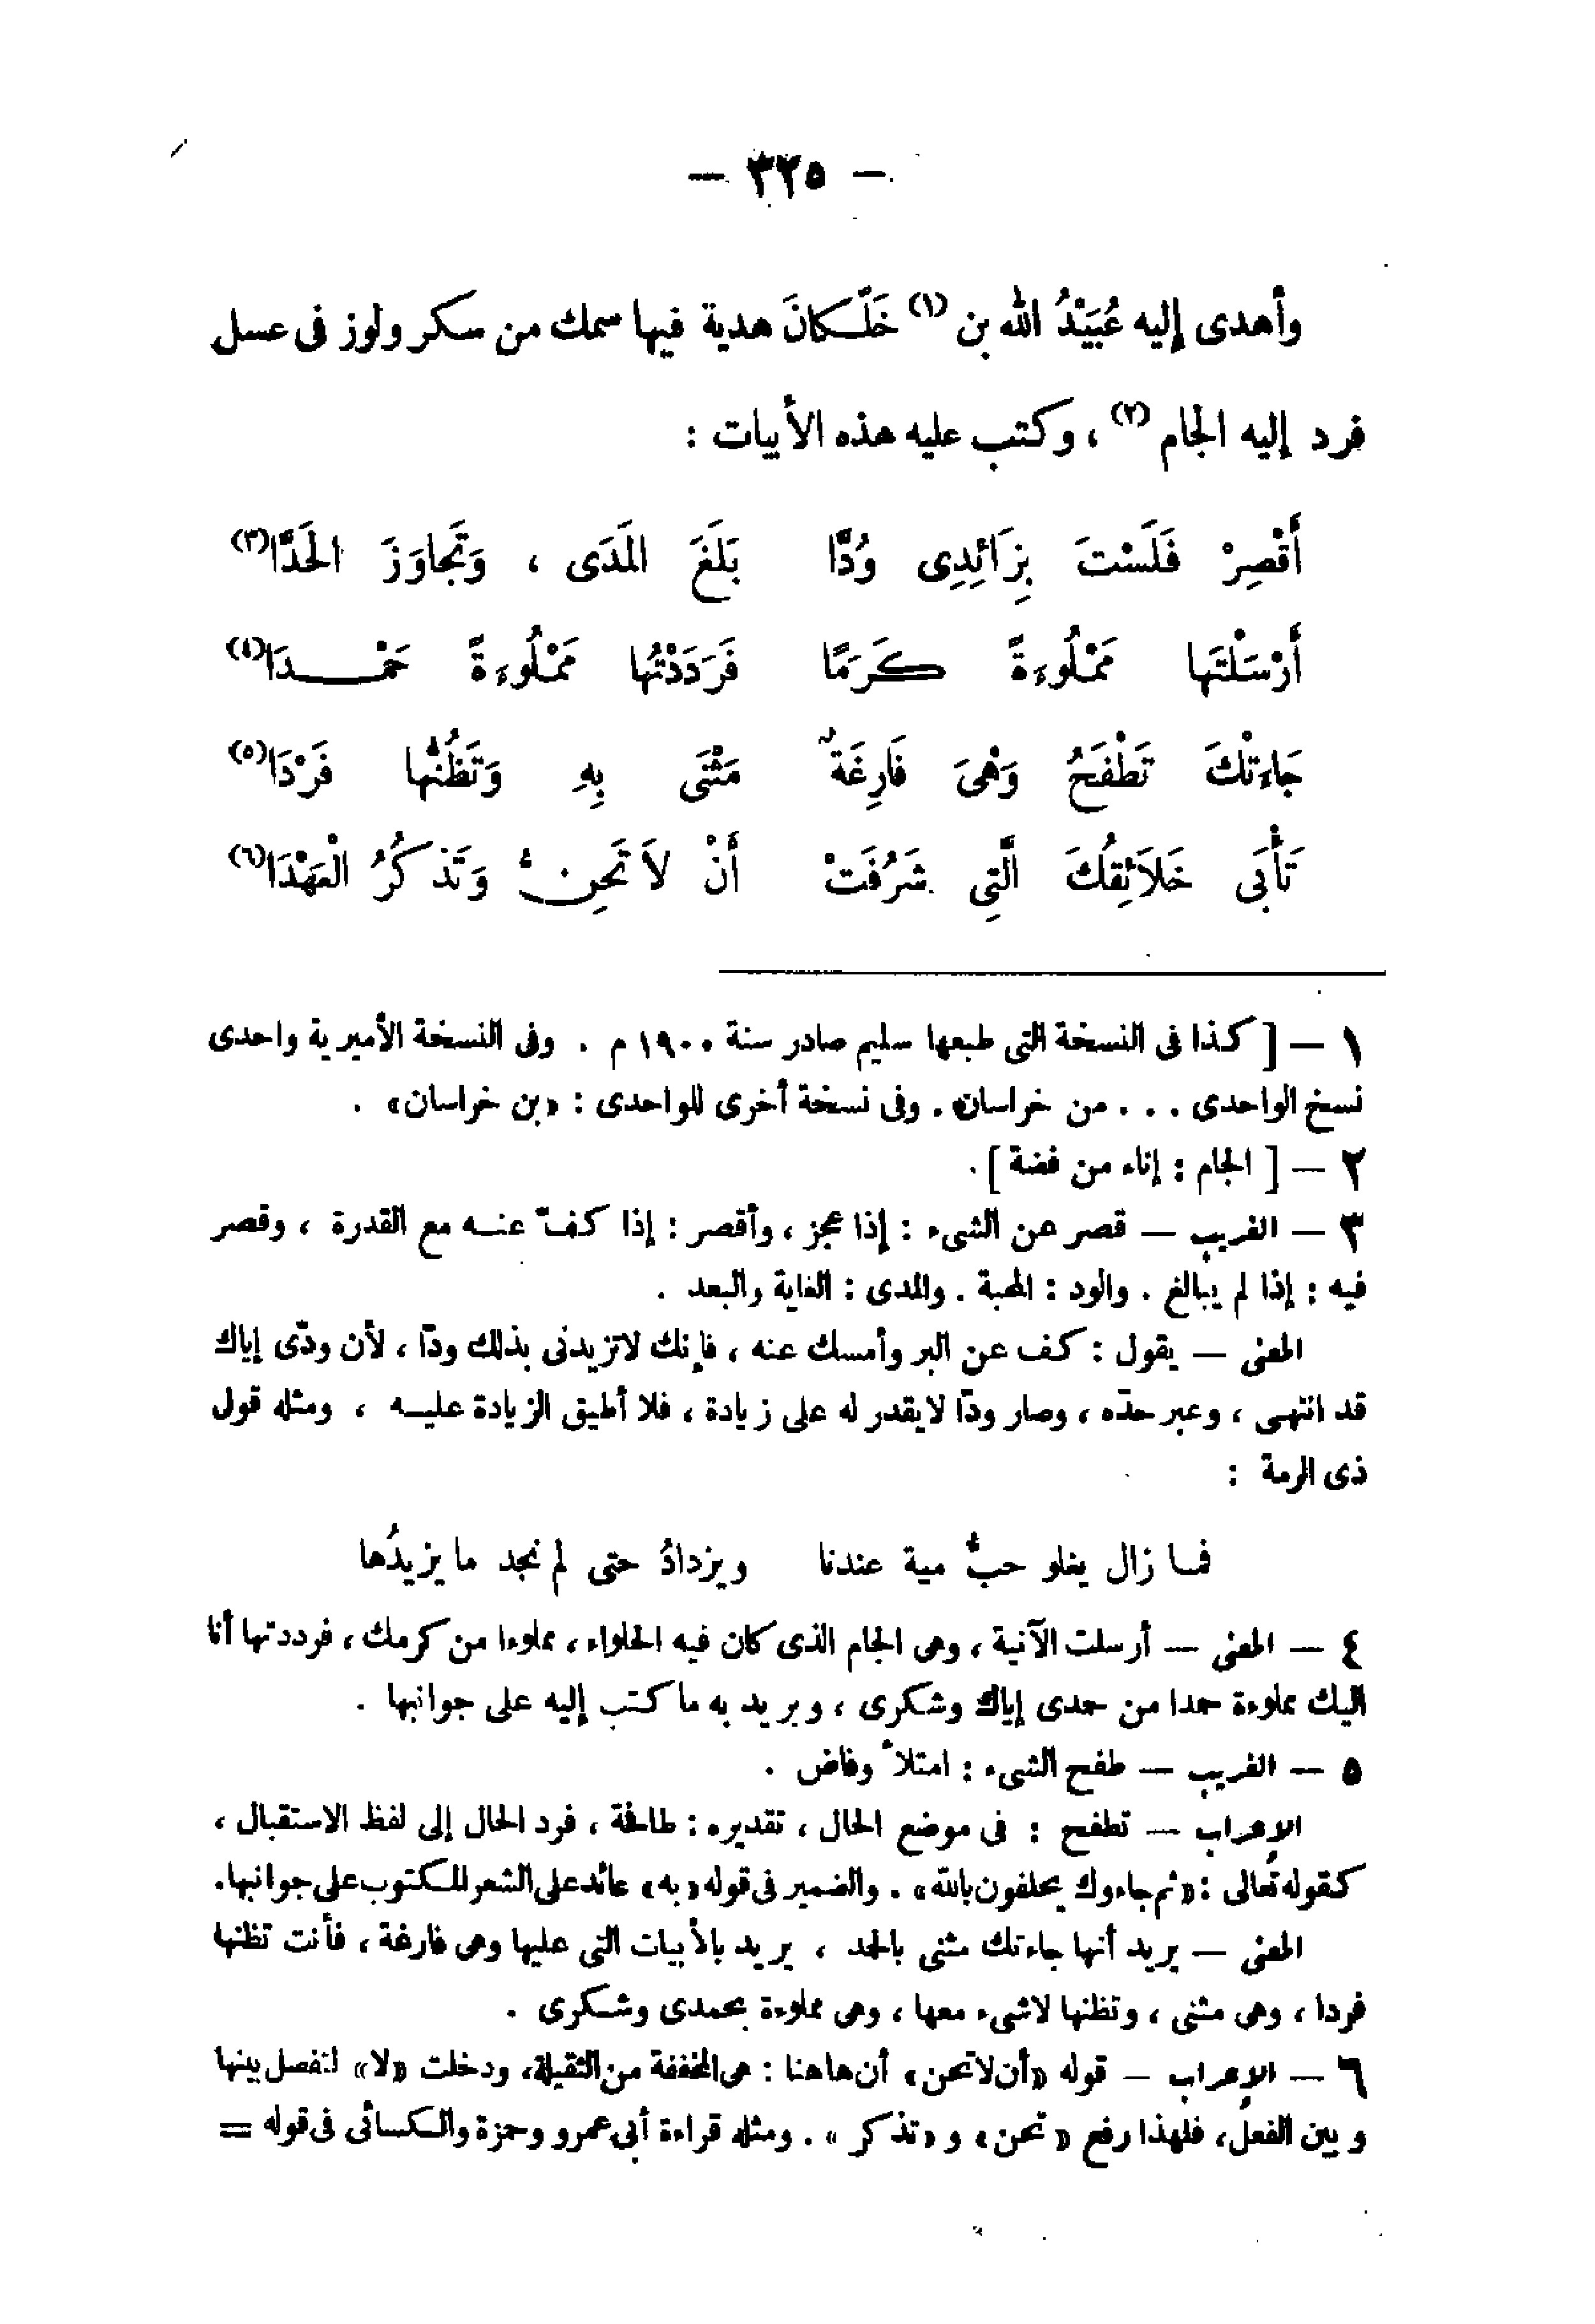 — ٣٢٥ —
وأهدى إليه عُبَيْدُ الله بن (١) خَلَّكانَ هدية فيها سمك من سكر ولوز فى عسل
فرد إليه الجام (٢) ، وكتب عليه هذه الأبيات :
أَقْصِرْ فَلَسْتَ بِزَائِدِى وُدَّا بَلَغَ المَدَى ، وَتَجاوَزَ الحَدَّا(٣)
أَرْسَلْتَها مَمْلُوءةً كَرَمًا فَرَدَدْتُها مَمْلُوءةً حَمْدَا(٤)
جَاءتْكَ تَطْفَحُ وَهْىَ فَارِغَةٌ مَثْنَى بِهِ وَتَظُنُّها فَرْدَا(٥)
تَأْبَى خَلَائِقُكَ الَّتِى شَرُفَتْ أَنْ لاَ تَحِنُّ وَتَذكُرُ الْعَهْدَا(٦)
١ — [ كذا فى النسخة التى طبعها سليم صادر سنة ١٩٠٠ م . وفى النسخة الأميرية واحدى
نسخ الواحدى . . . من خراسان» . وفى نسخة أخرى للواحدى : «بن خراسان» .
٢ — [ الجام : إناء من فضة ] .
٣ — الغريب — قصر عن الشىء : إذا عجز ، وأقصر : إذا كفّ عنه مع القدرة ، وقصر
فيه : إذا لم يبالغ . والود : المحبة . والمدى : الغاية والبعد .
المعنى — يقول : كف عن البر وأمسك عنه ، فإنك لاتزيدنى بذلك ودّا ، لأن ودّى إياك
قد انتهى ، وعبر حدّه ، وصار ودّا لايقدر له على زيادة ، فلا أطيق الزيادة عليه ، ومثله قول
ذى الرمة :
فما زال يغلو حبُّ مية عندنا ويزدادُ حتى لم نجد ما يزيدُها
٤ — المعنى — أرسلت الآنية ، وهى الجام الذى كان فيه الحلواء ، مملوءا من كرمك ، فرددتها أنا
اليك مملوءة حمدا من حمدى إياك وشكرى ، ويريد به ما كتب إليه على جوانبها .
٥ — الغريب — طفح الشىء : امتلأ وفاض .
الإعراب — تطفح : فى موضع الحال ، تقديره : طافحة ، فرد الحال إلى لفظ الاستقبال ،
كقوله تعالى : «ثم جاءوك يحلفون بالله» . والضمير فى قوله «به» عائد على الشعر المكتوب على جوانبها.
المعنى — يريد أنها جاءتك مثنى بالحمد ، يريد بالأبيات التى عليها وهى فارغة ، فأنت تظنها
فردا ، وهى مثنى ، وتظنها لاشىء معها ، وهى مملوءة بحمدى وشكرى .
٦ — الإعراب — قوله «أن لاتحن» أن هاهنا : هى المخففة من الثقيلة، ودخلت «لا» لتفصل بينها
وبين الفعل، فلهذا رفع «تحن» و «تذكر» . ومثله قراءة أبى عمرو وحمزة والكسائى فى قوله =